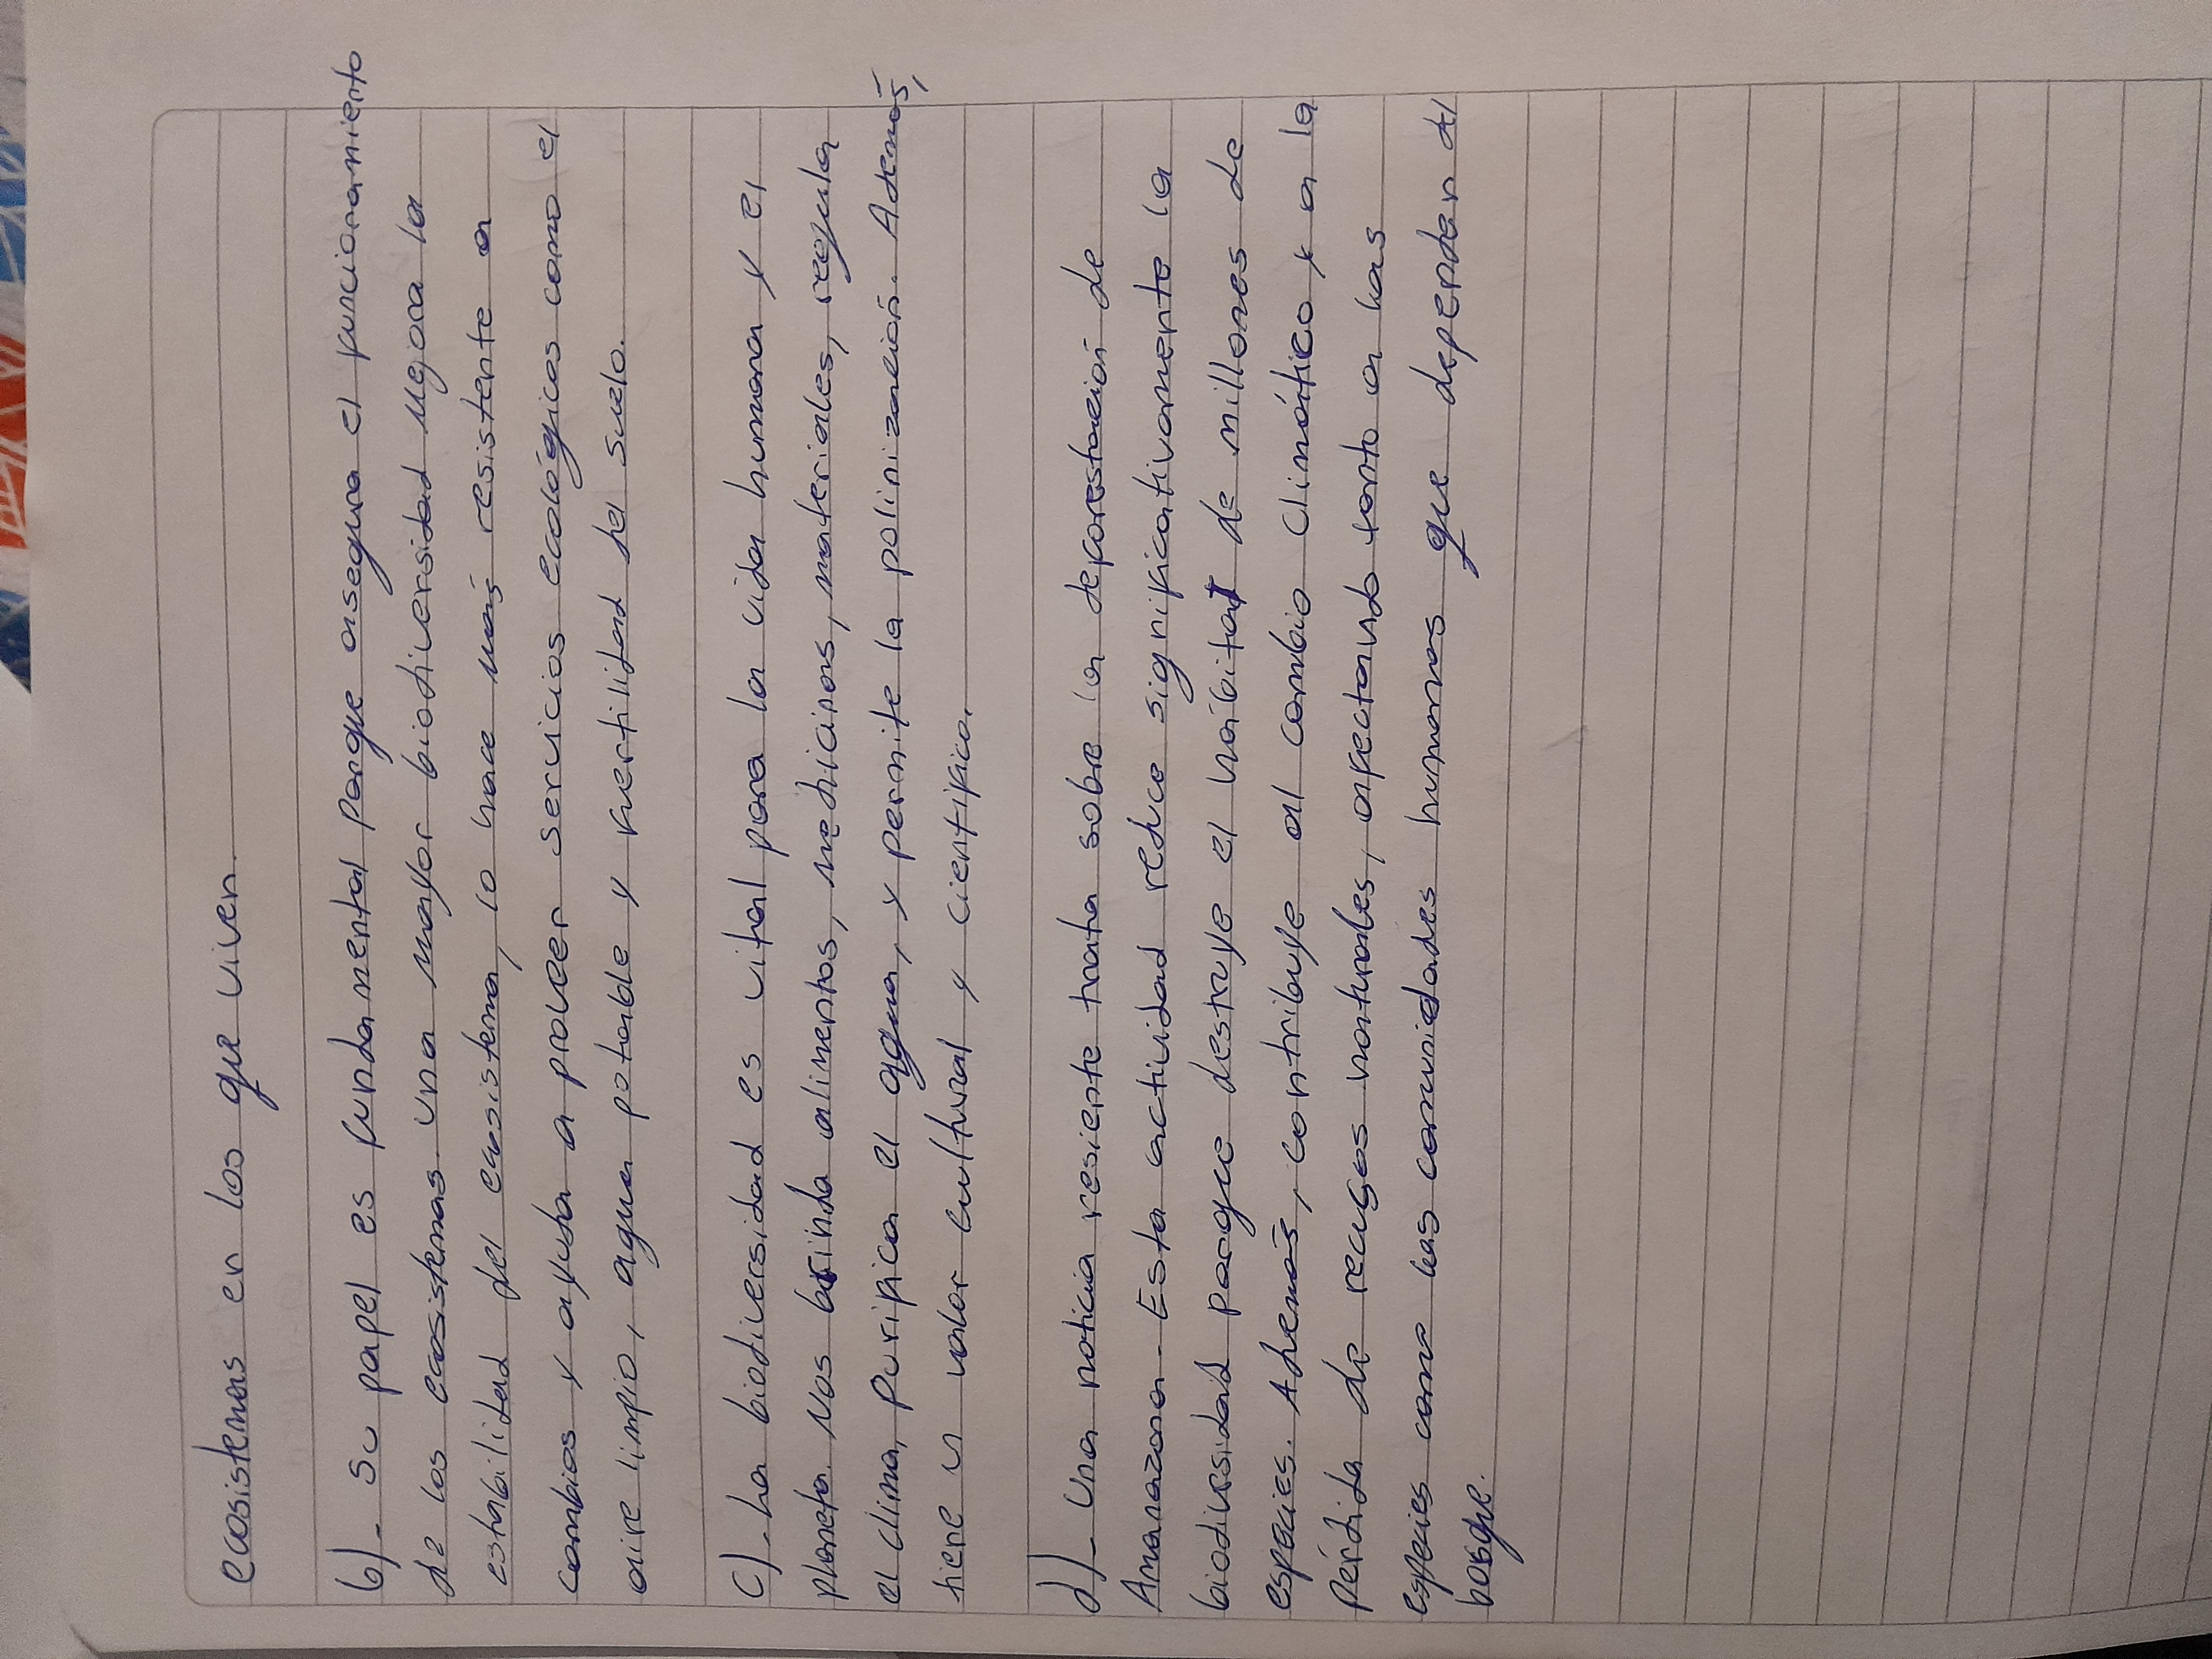 ecosistemas en los que viven.
b)- su papel es fundamental porque asegura el funcionamiento
de los ecosistemas una mayor biodiversidad mejora la
estabilidad del ecosistema, lo hace más resistente a
cambios y ayuda a proveer servicios ecológicos como el
aire limpio, agua potable y fertilidad del suelo.
c)- La biodiversidad es vital para la vida humana y el
planeta. Nos brinda alimentos, medicinas, materiales, regula
el clima, purifica el agua, y permite la polinización. Además,
tiene u valor cultural y científico.
d)- Una noticia resiente trata sobre la deforestación de
Amanazona. Esta actividad reduce significativamente la
biodiversidad porque destruye el hábitat de millones de
especies. Además, contribuye al cambio climático y a la
Pérdida de recusos naturales, afectando tanto a las
especies como las comunidades humanas que dependen del
bosque.